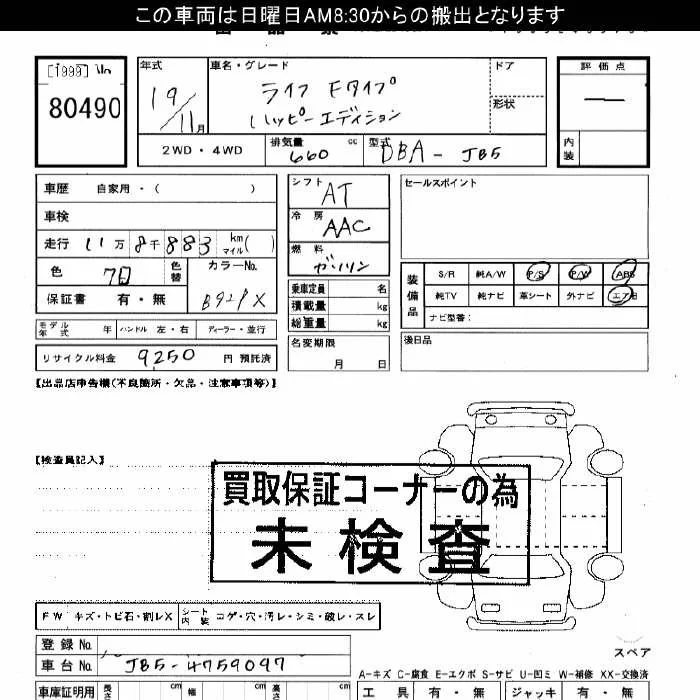 この車両は日曜日AM8:30からの搬出となります
[1999]
80490
年式 車名・グレード ドア 評価点
19/11月 ライフ Fタイプ 形状 —
ハッピーエディション
2WD・4WD 排気量 660 cc 型式 DBA-JB5 内装
車歴 自家用・( )
車検
走行 11万8千883 km マイル( )
色 色替 カラーNo.
保証書 有・無
シフト AT
冷房 AAC
燃料 ガソリン
乗車定員 名
積載量 kg
総重量 kg
名変期限
月 日
セールスポイント
装備品 S/R 純A/W P/S P/W ABS
純TV 純ナビ 革シート 外ナビ エアB
ナビ型番:
後日品
モデル年式 年 ハンドル 左・右 ディーラー・並行
リサイクル料金 9250 円 預託済
【出品店申告欄(不良箇所・欠品・注意事項等)】
【検査員記入】
買取保証コーナーの為
未検査
FW キズ・トビ石・割レX シート内装 コゲ・穴・汚レ・シミ・破レ・スレ
登録No.
車台No. JB5-4759097
スペア
A-キズ C-腐食 E-エクボ S-サビ U-凹ミ W-補修 XX-交換済
車庫証明用 長さ cm 幅 cm 高さ cm 工具 有・無 ジャッキ 有・無